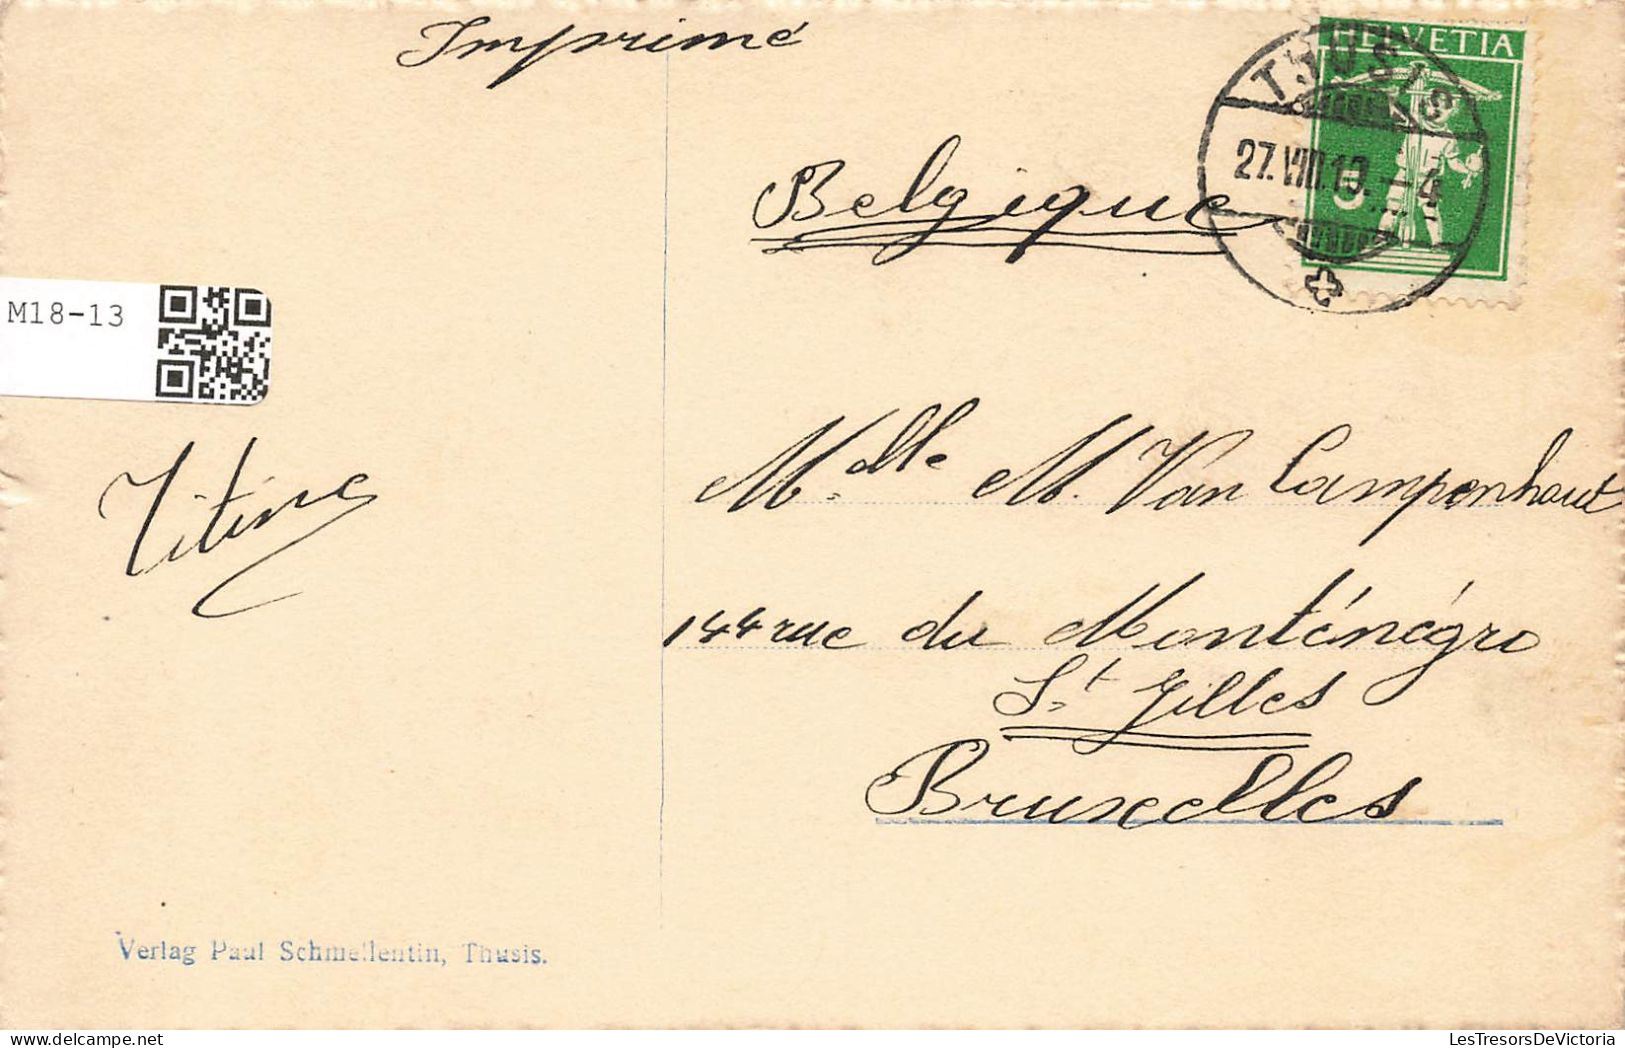 Imprimé
HELVETIA
THUSIS
27.VIII.13.–4
5
Belgique
M18-13
Titine
M.dlle M. Van Campenhout
144 rue du Monténégro
St. Gilles
Bruxelles
Verlag Paul Schmellentin, Thusis.
LesTresorsDeVictoria